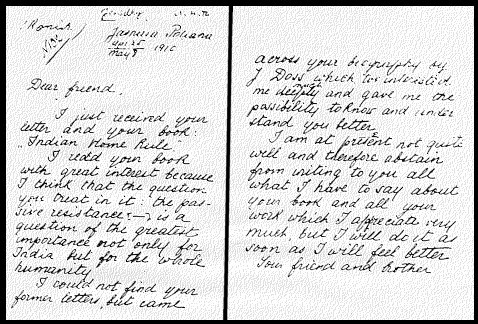 Jasnaia Poliana
1910
May 8
Dear friend.
I just received your
letter and your book:
„Indian Home Rule"
I read your book
with great interest because
I think that the question
you treat in it: the pas-
sive resistance - is a
question of the greatest
importance not only for
India but for the whole
humanity
I could not find your
former letters, but came
across your biography by
J Doss which too interested
me deeply and gave me the
possibility to know and under
stand you better.
I am at present not quite
well and therefore abstain
from writing to you all
what I have to say about
your book and all your
work which I appreciate very
much, but I will do it as
soon as I will feel better
Your friend and brother